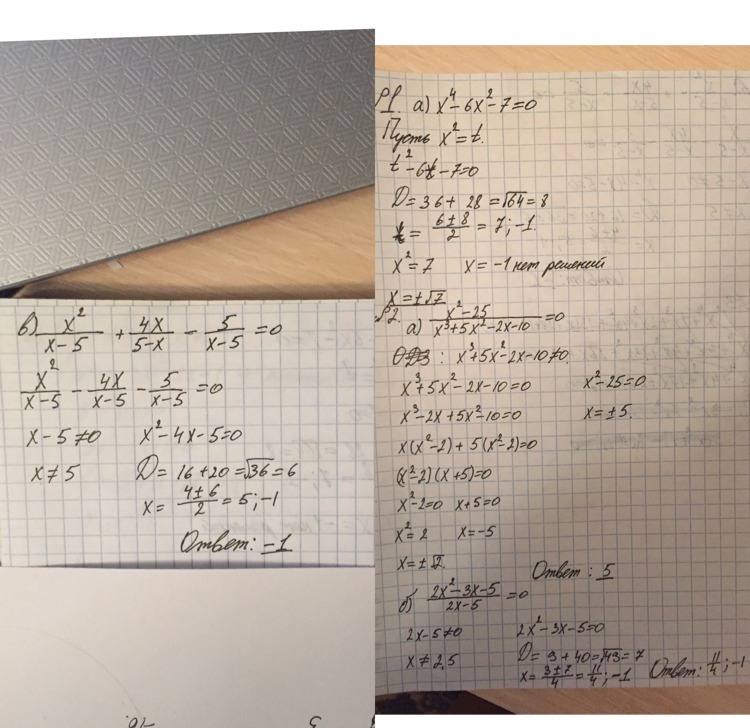 в) x²/(x-5) + 4x/(5-x) - 5/(x-5) = 0
x²/(x-5) - 4x/(x-5) - 5/(x-5) = 0
x-5≠0 x²-4x-5=0
x≠5 D=16+20=√36=6
x= (4±6)/2 = 5; -1
Ответ: -1
№1. а) x⁴-6x²-7=0
Пусть x²=t.
t²-6t-7=0
D=36+28=√64=8
t= (6±8)/2 = 7; -1.
x²=7 x=-1 нет решений
x=±√7
№2. а) (x²-25)/(x³+5x²-2x-10) = 0
ОДЗ: x³+5x²-2x-10≠0.
x³+5x²-2x-10=0 x²-25=0
x³-2x+5x²-10=0 x=±5.
x(x²-2)+5(x²-2)=0
(x²-2)(x+5)=0
x²-2=0 x+5=0
x²=2 x=-5
x=±√2.
Ответ: 5
б) (2x²-3x-5)/(2x-5) = 0
2x-5≠0 2x²-3x-5=0
x≠2,5 D=9+40=√49=7
x= (3±7)/4 = 11/4; -1 Ответ: 11/4; -1